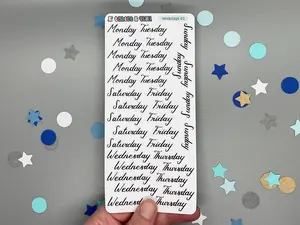 Monday Tuesday
Monday Tuesday
Monday Tuesday
Monday Tuesday
Monday Tuesday
Saturday Friday
Saturday Friday
Saturday Friday
Saturday Friday
Saturday Friday
Wednesday Thursday
Wednesday Thursday
Wednesday Thursday
Wednesday Thursday
Wednesday Thursday
Sunday
Sunday
Sunday
Sunday
Sunday